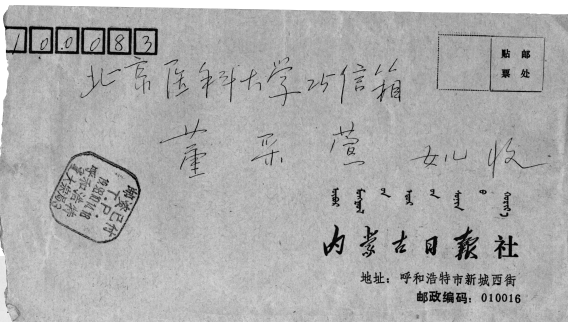 100083
贴邮
票处
北京医科大学25信箱
董采萱 女儿收
邮资已付
T.P.
内蒙古日报社
地址：呼和浩特市新城西街
邮政编码：010016